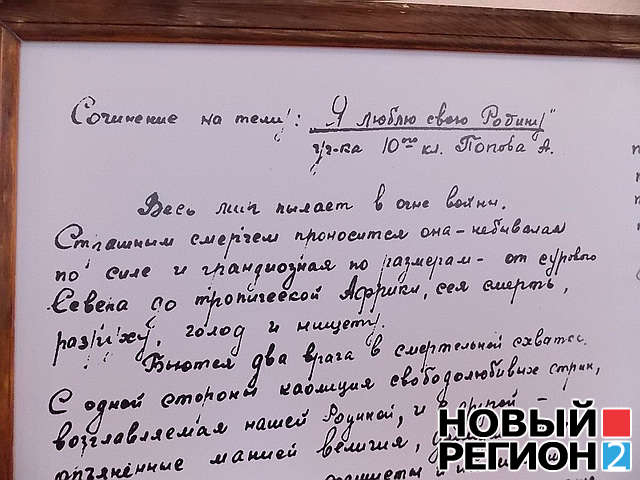 Сочинение на тему: „Я люблю свою Родину"
уч-ка 10ого кл. Попова А.
Весь мир пылает в огне войны.
Страшным смерчем проносится она - небывалая
по силе и грандиозная по размерам - от сурового
Севера до тропической Африки, сея смерть,
разруху, голод и нищету.
Бьются два врага в смертельной схватке.
С одной стороны коалиция свободолюбивых стран,
возглавляемая нашей Родиной, и с другой -
опьянённые манией величия,
НОВЫЙ
РЕГИОН 2